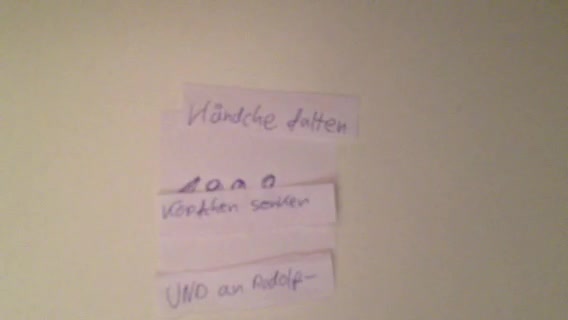 Händche falten
Köpfchen senken
UND an Adolp-